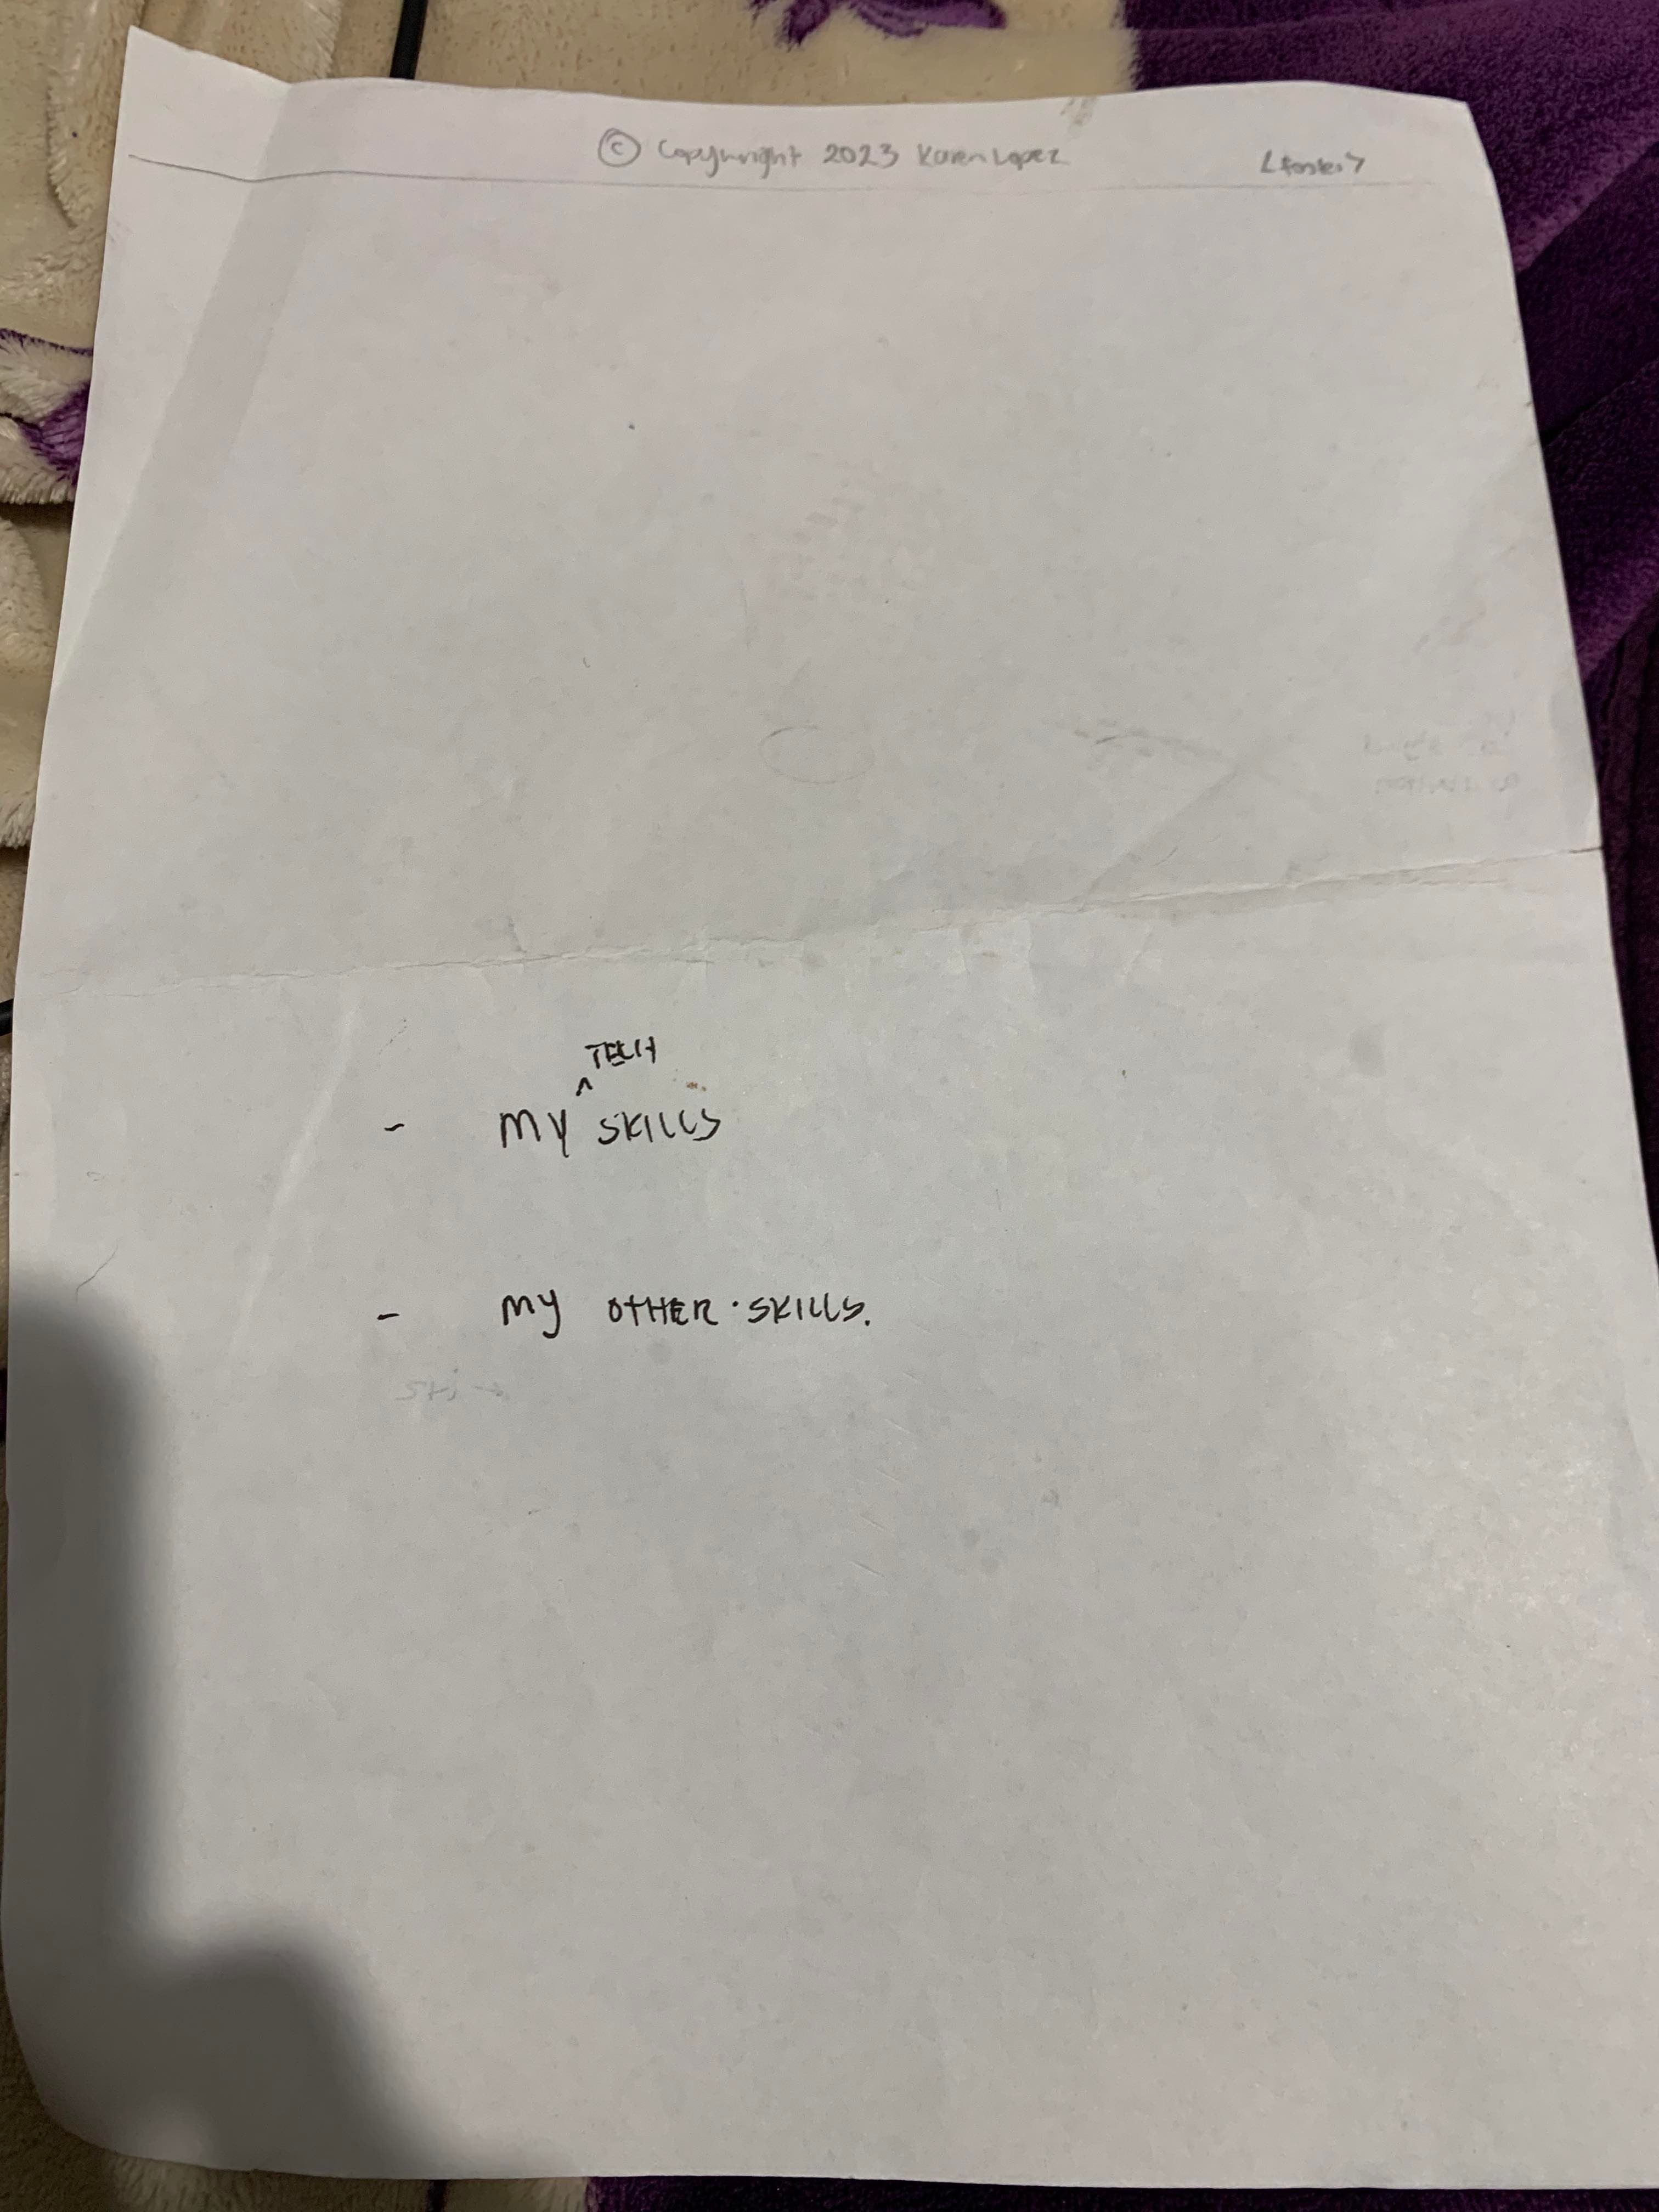 © Copywright 2023 Karen Lopez <footer>
TECH
^
- MY SKILLS
- MY OTHER · SKILLS.